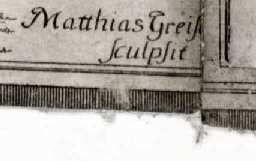 Matthias Greiſ
ſculpſit